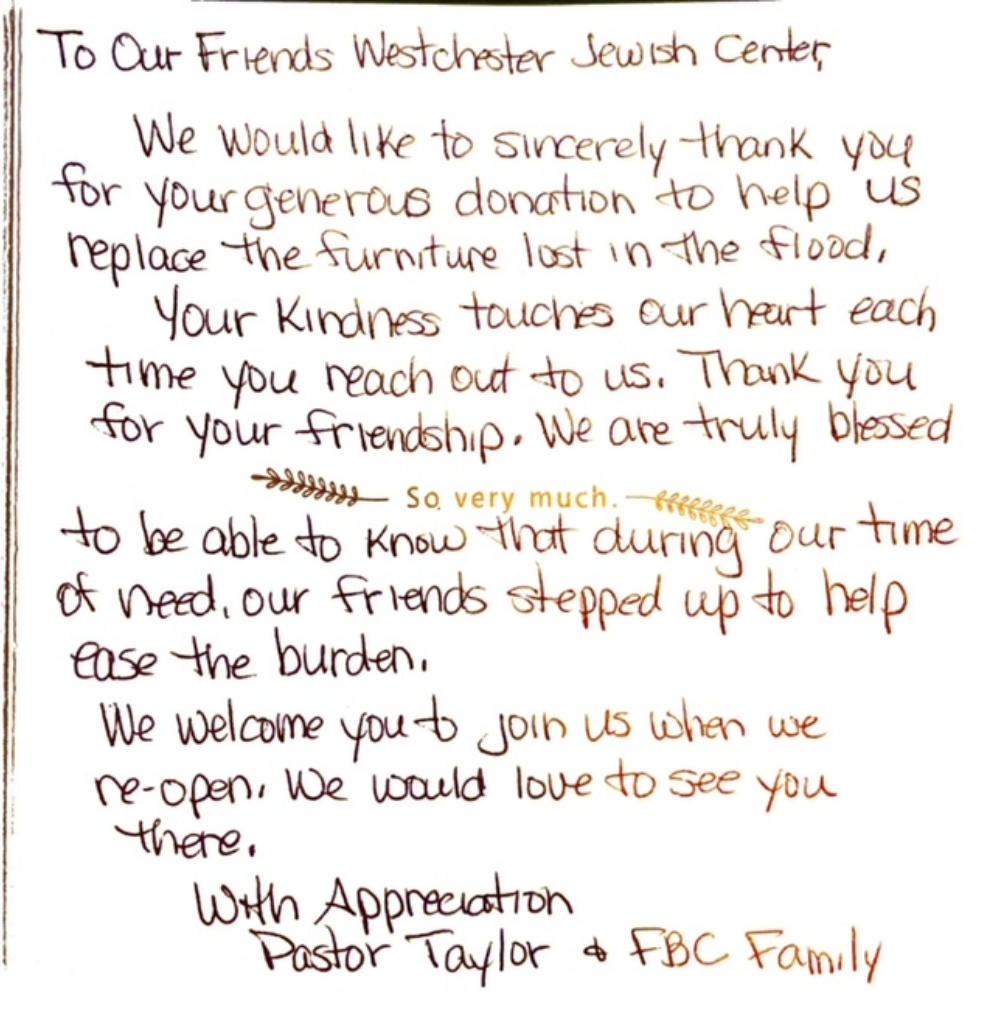 To Our Friends Westchester Jewish Center,
We would like to sincerely thank you
for your generous donation to help us
replace the furniture lost in the flood.
Your Kindness touches our heart each
time you reach out to us. Thank you
for your friendship. We are truly blessed
So very much.
to be able to know that during our time
of need, our friends stepped up to help
ease the burden.
We welcome you to join us when we
re-open. We would love to see you
there.
With Appreciation
Pastor Taylor & FBC Family